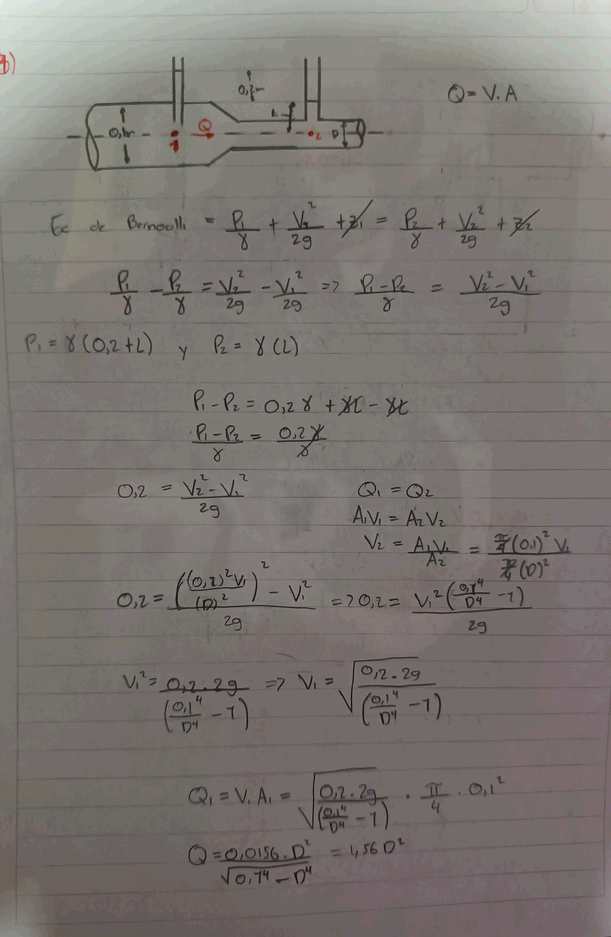 0,2m
0,1m Q L D
1 2
Q = V.A
Ec de Bernoulli = P₁/γ + V₂²/2g + z₁ = P₂/γ + V₂²/2g + z₂
P₁/γ - P₂/γ = V₂²/2g - V₁²/2g => P₁-P₂/γ = V₂² - V₁²/2g
P₁ = γ(0,2+L) y P₂ = γ(L)
P₁ - P₂ = 0,2γ + γL - γL
P₁ - P₂/γ = 0,2γ/γ
0,2 = V₂² - V₁²/2g
Q₁ = Q₂
A₁V₁ = A₂V₂
V₂ = A₁V₁/A₂ = π/4(0,1)² V₁/π/4(D)²
0,2 = (((0,1)²V₁/(D)²)² - V₁²)/2g => 0,2 = V₁²(0,1⁴/D⁴ - 1)/2g
V₁² = 0,2.2g/(0,1⁴/D⁴ - 1) => V₁ = √(0,2.2g/(0,1⁴/D⁴ - 1))
Q₁ = V₁A₁ = √(0,2.2g/(0,1⁴/D⁴ - 1)) . π/4 . 0,1²
Q = 0,0156.D²/√(0,1⁴ - D⁴) = 1,56 D²